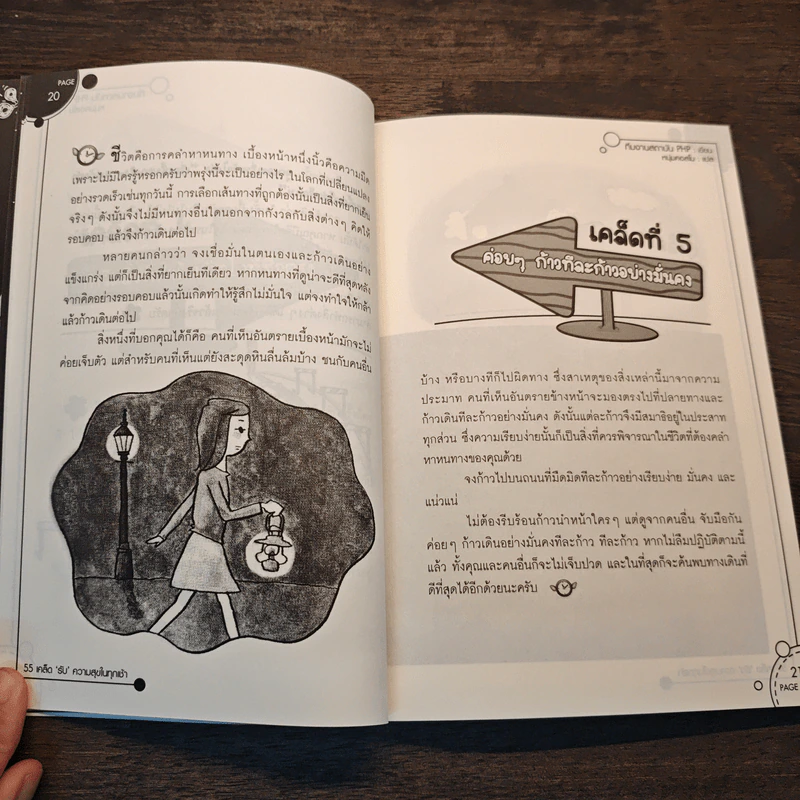 PAGE
20
ชีวิตคือการคลำหาหนทาง เบื้องหน้าหนึ่งนิ้วคือความมืด
เพราะไม่มีใครรู้หรอกครับว่าพรุ่งนี้จะเป็นอย่างไร ในโลกที่เปลี่ยนแปลง
อย่างรวดเร็วเช่นทุกวันนี้ การเลือกเส้นทางที่ถูกต้องนั้นเป็นสิ่งที่ยากเย็น
จริงๆ ดังนั้นจึงไม่มีหนทางอื่นใดนอกจากกังวลกับสิ่งต่างๆ คิดให้
รอบคอบ แล้วจึงก้าวเดินต่อไป
หลายคนกล่าวว่า จงเชื่อมั่นในตนเองและก้าวเดินอย่าง
แข็งแกร่ง แต่ก็เป็นสิ่งที่ยากเย็นทีเดียว หากหนทางที่ดูน่าจะดีที่สุดหลัง
จากคิดอย่างรอบคอบแล้วนั้นเกิดทำให้รู้สึกไม่มั่นใจ แต่จงทำใจให้กล้า
แล้วก้าวเดินต่อไป
สิ่งหนึ่งที่บอกคุณได้ก็คือ คนที่เห็นอันตรายเบื้องหน้ามักจะไม่
ค่อยเจ็บตัว แต่สำหรับคนที่เห็นแต่ยังสะดุดหินลื่นล้มบ้าง ชนกับคนอื่น
55 เคล็ด 'รับ' ความสุขในทุกเช้า
ทีมงานสถาบัน PHP : เขียน
หนุ่มคอสโม : แปล
เคล็ดที่ 5
ค่อยๆ ก้าวทีละก้าวอย่างมั่นคง
บ้าง หรือบางทีก็ไปผิดทาง ซึ่งสาเหตุของสิ่งเหล่านี้มาจากความ
ประมาท คนที่เห็นอันตรายข้างหน้าจะมองตรงไปที่ปลายทางและ
ก้าวเดินทีละก้าวอย่างมั่นคง ดังนั้นแต่ละก้าวจึงมีสมาธิอยู่ในประสาท
ทุกส่วน ซึ่งความเรียบง่ายนั้นก็เป็นสิ่งที่ควรพิจารณาในชีวิตที่ต้องคลำ
หาหนทางของคุณด้วย
จงก้าวไปบนถนนที่มืดมิดทีละก้าวอย่างเรียบง่าย มั่นคง และ
แน่วแน่
ไม่ต้องรีบร้อนก้าวนำหน้าใครๆ แต่ดูจากคนอื่น จับมือกัน
ค่อยๆ ก้าวเดินอย่างมั่นคงทีละก้าว ทีละก้าว หากไม่ลืมปฏิบัติตามนี้
แล้ว ทั้งคุณและคนอื่นก็จะไม่เจ็บปวด และในที่สุดก็จะค้นพบทางเดินที่
ดีที่สุดได้อีกด้วยนะครับ
21
PAGE